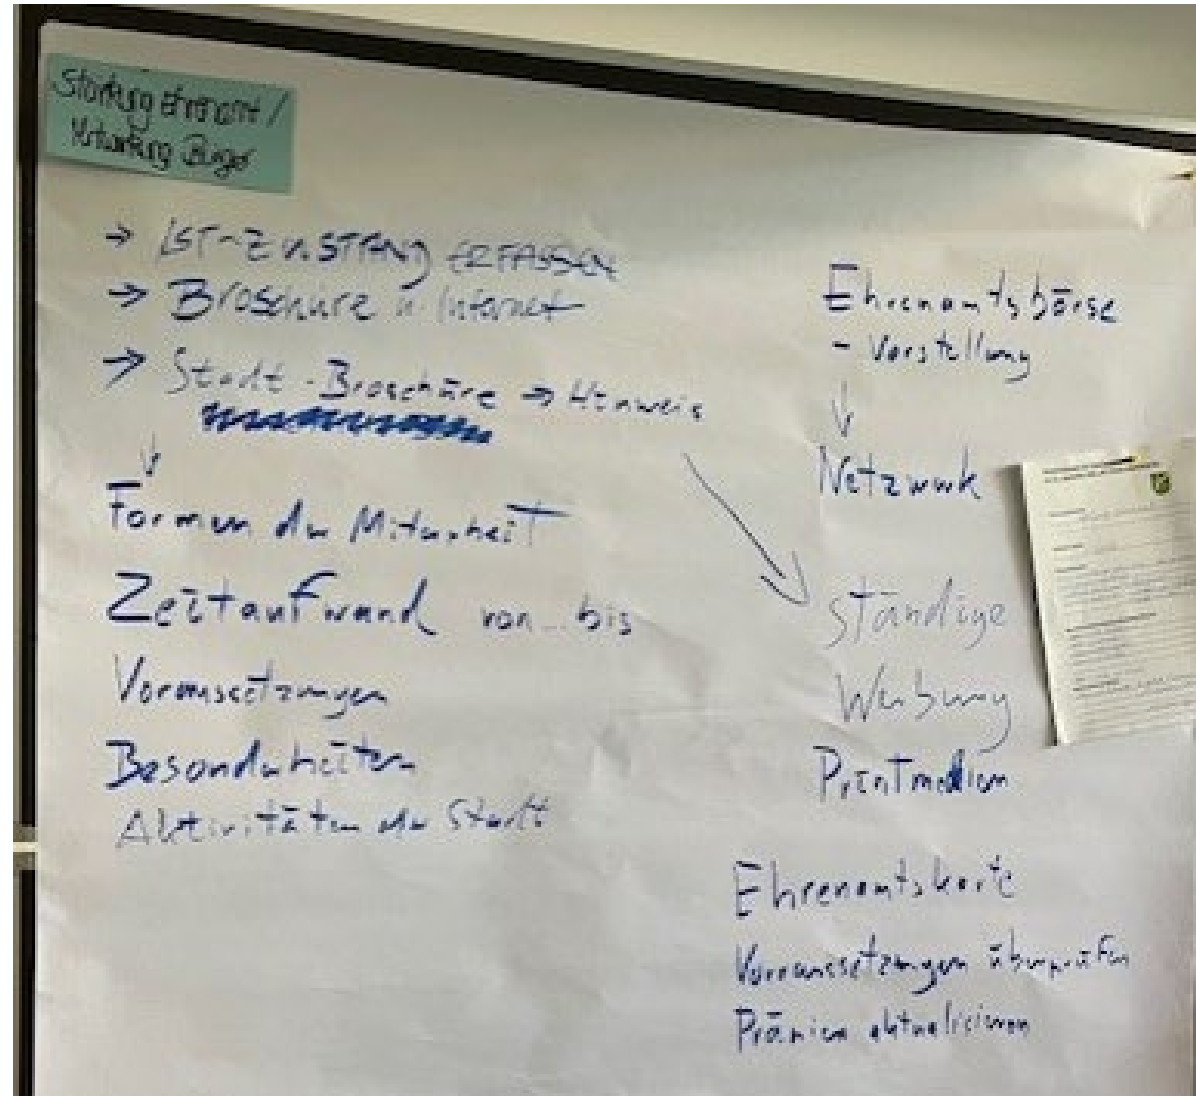 Stärkung Ehrenamt /
Mitwirkung Bürger
→ IST-ZUSTAND ERFASSEN
→ Broschüre u. Internet
→ Stadt-Broschüre → Hinweis
↓
Formen der Mitarbeit
Zeitaufwand von... bis
Voraussetzungen
Besonderheiten
Aktivitäten der Stadt
Ehrenamtsbörse
- Vorstellung
↓
Netzwerk
ständige
Werbung
Printmedien
Ehrenamtskarte
Voraussetzungen überprüfen
Prämien aktualisieren